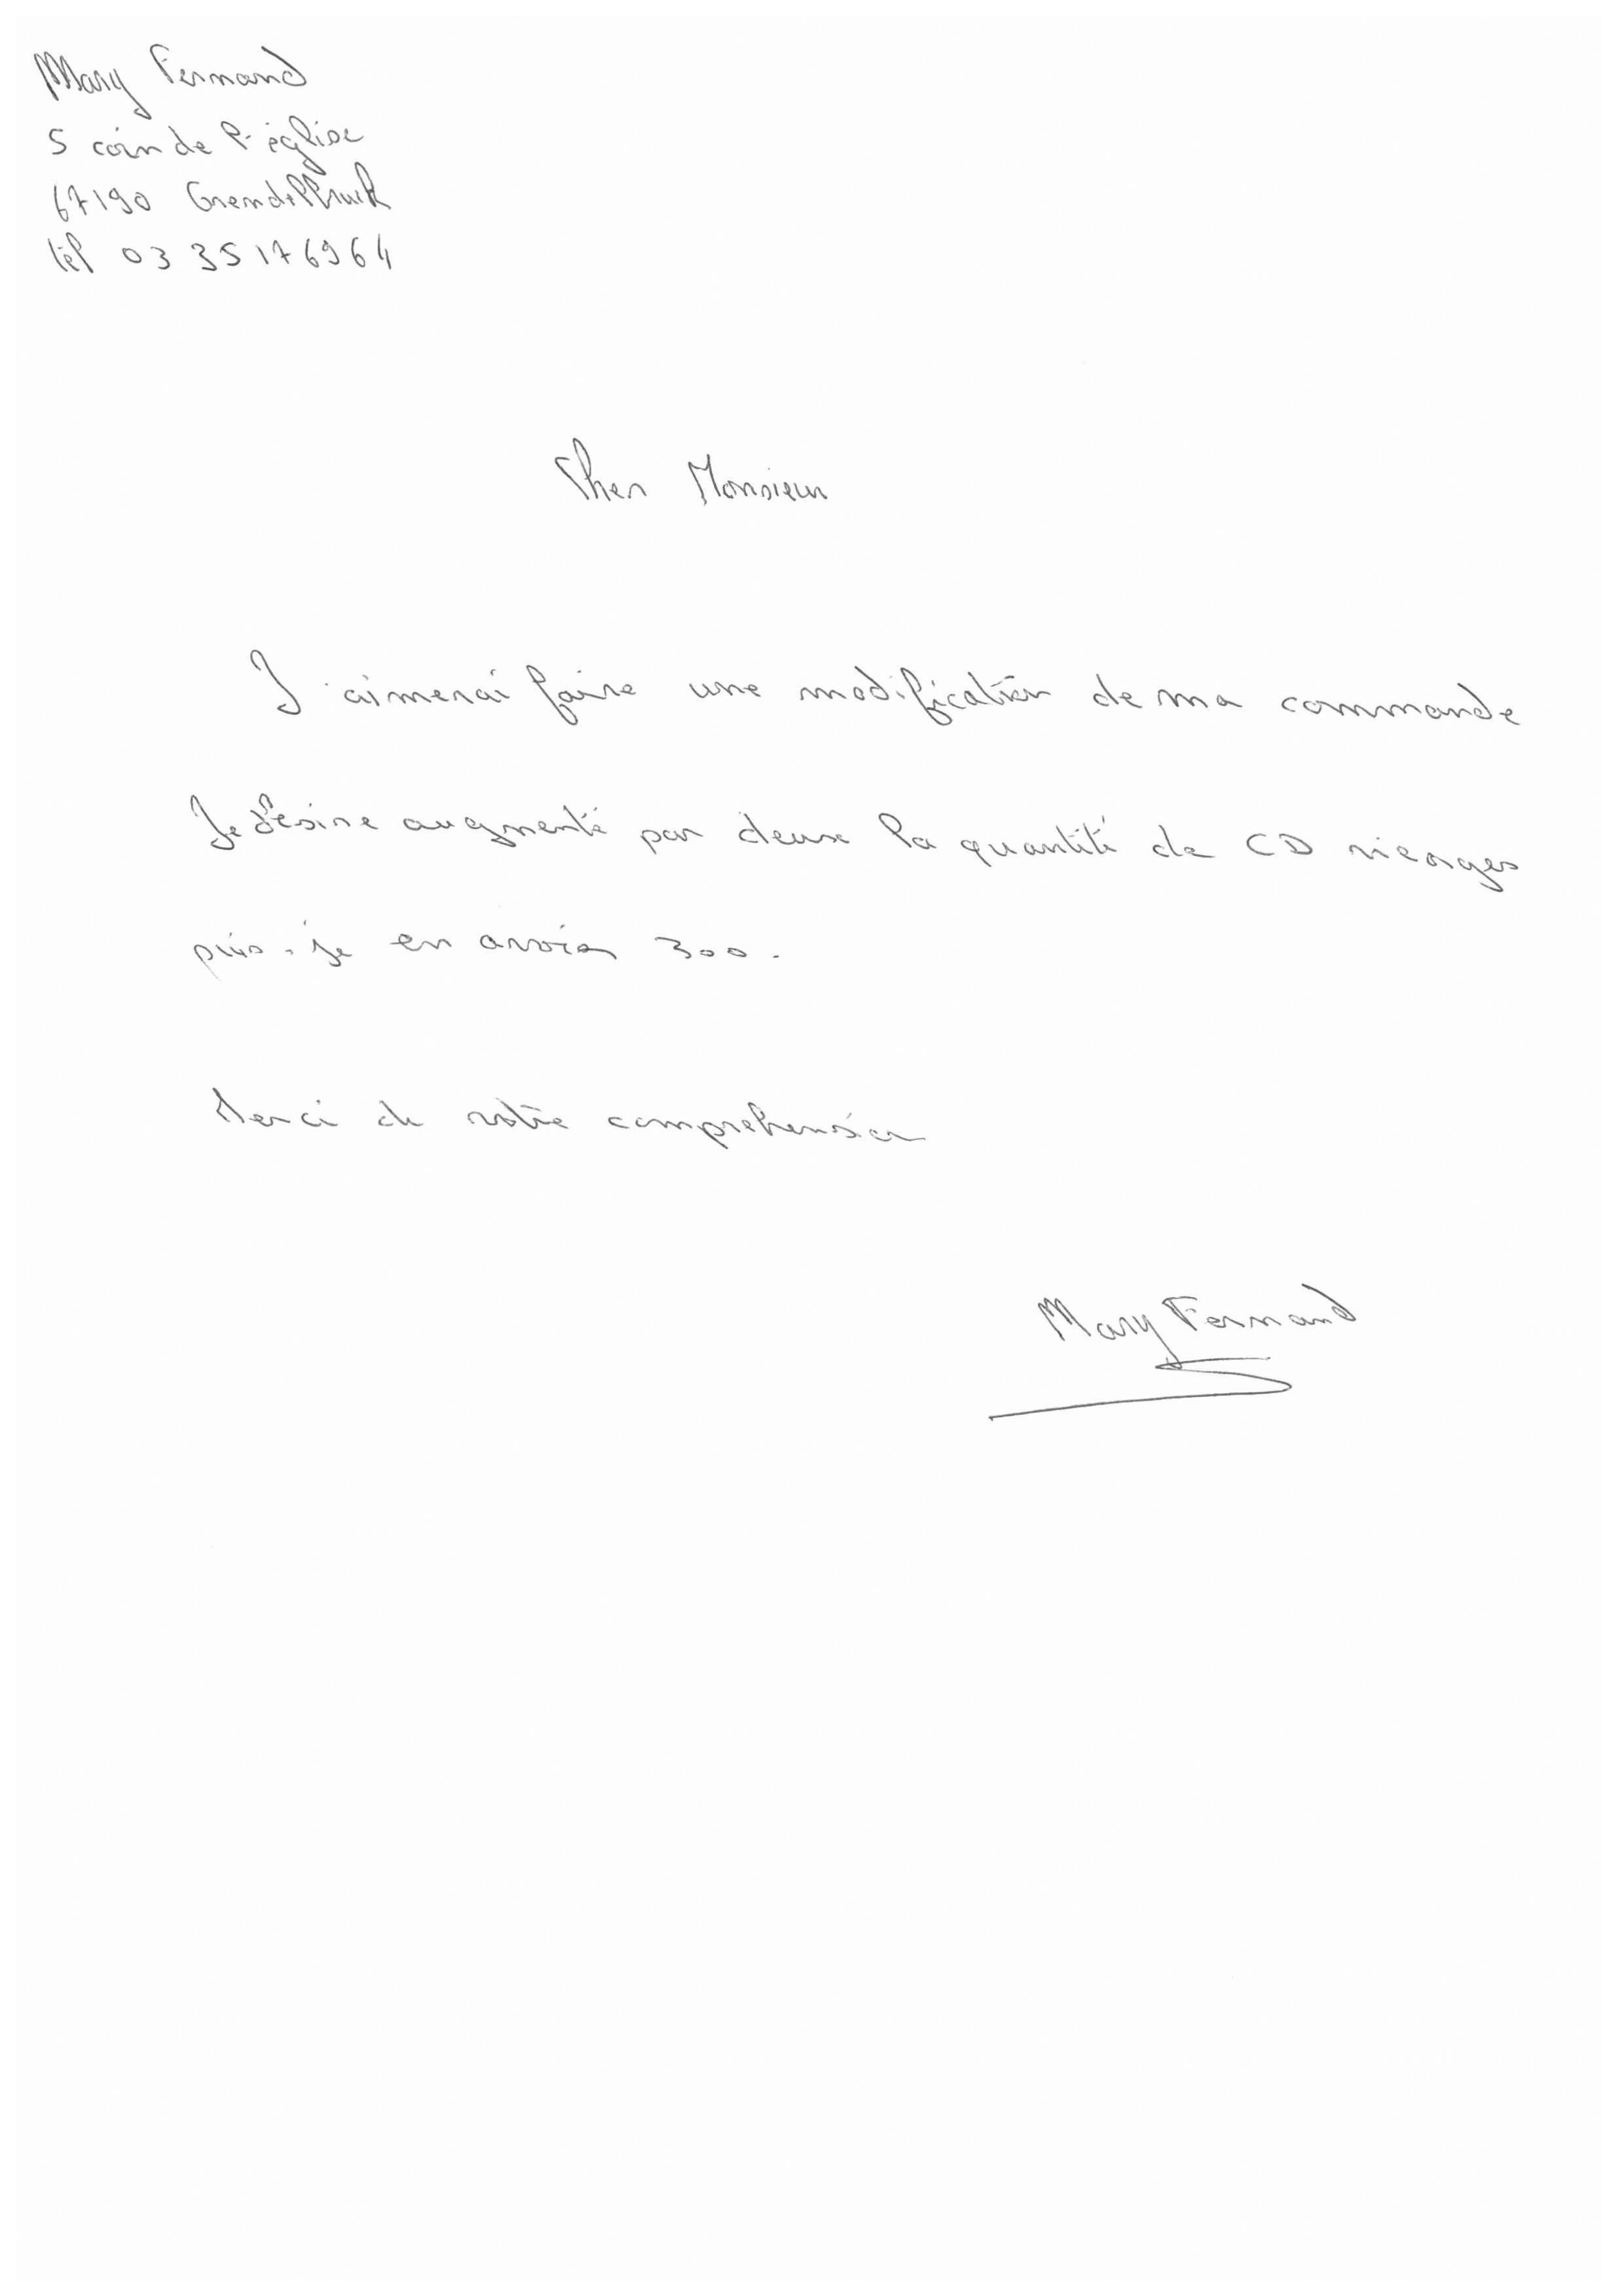 Mary Fernand
5 coin de l'église
67190 Grendelbruch
tél 03 35 17 69 64
Cher Monsieur
J'aimerai faire une modification de ma commande
Je désire augmenté par deux la quantité de CD vierges
puis-je en avoir 300.
Merci de votre comprehension
Mary Fernand